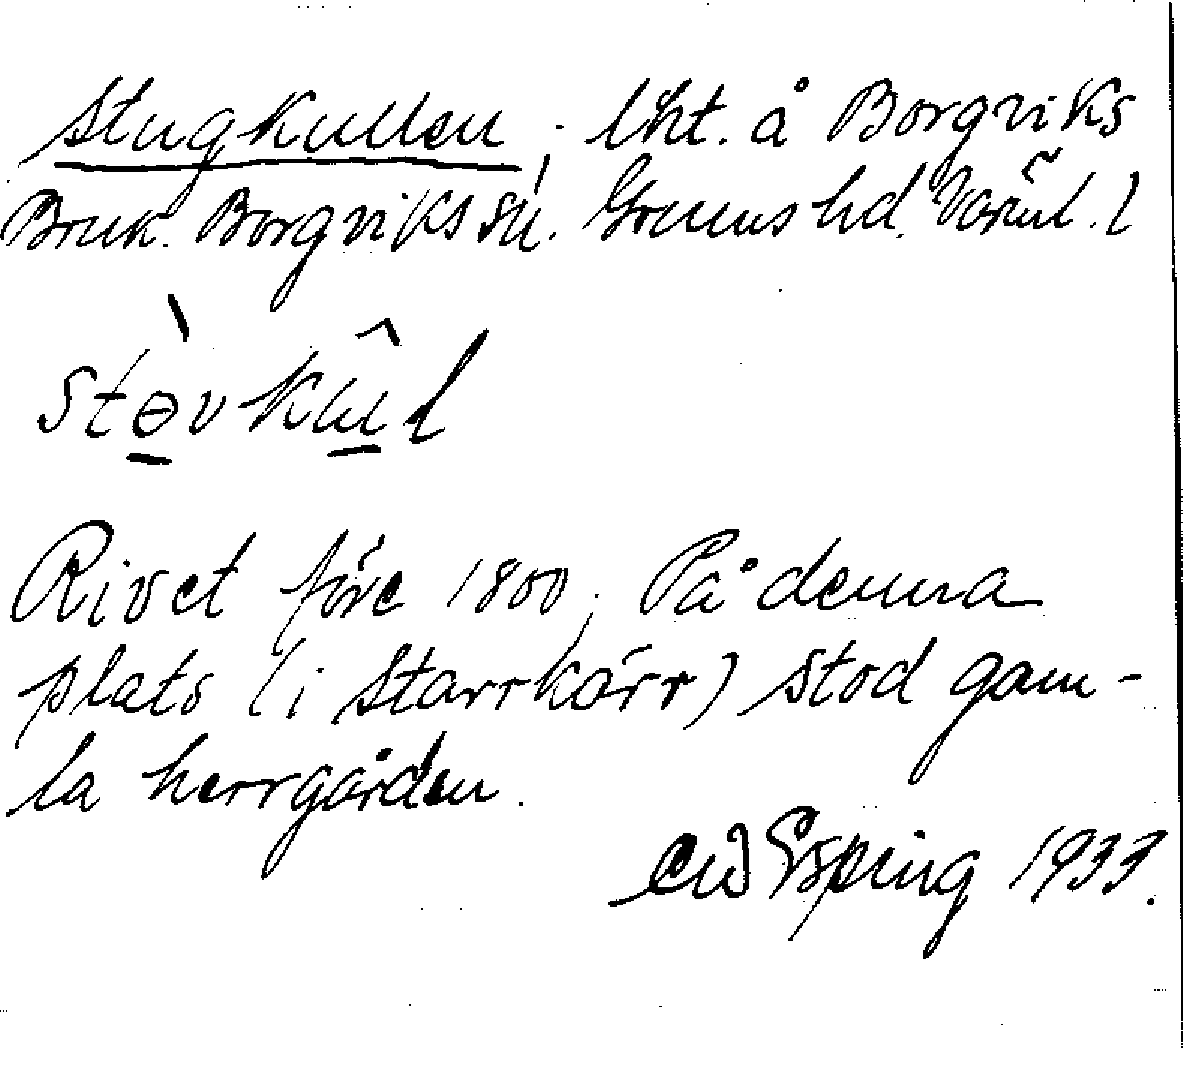 Stugkullen, lht. å Borgviks
Bruk. Borgviks sn. Grums hd. Värml. l
Rivet före 1800, På denna
plats (i Starrkärr) stod gam-
la herrgården.
Esping 1933.